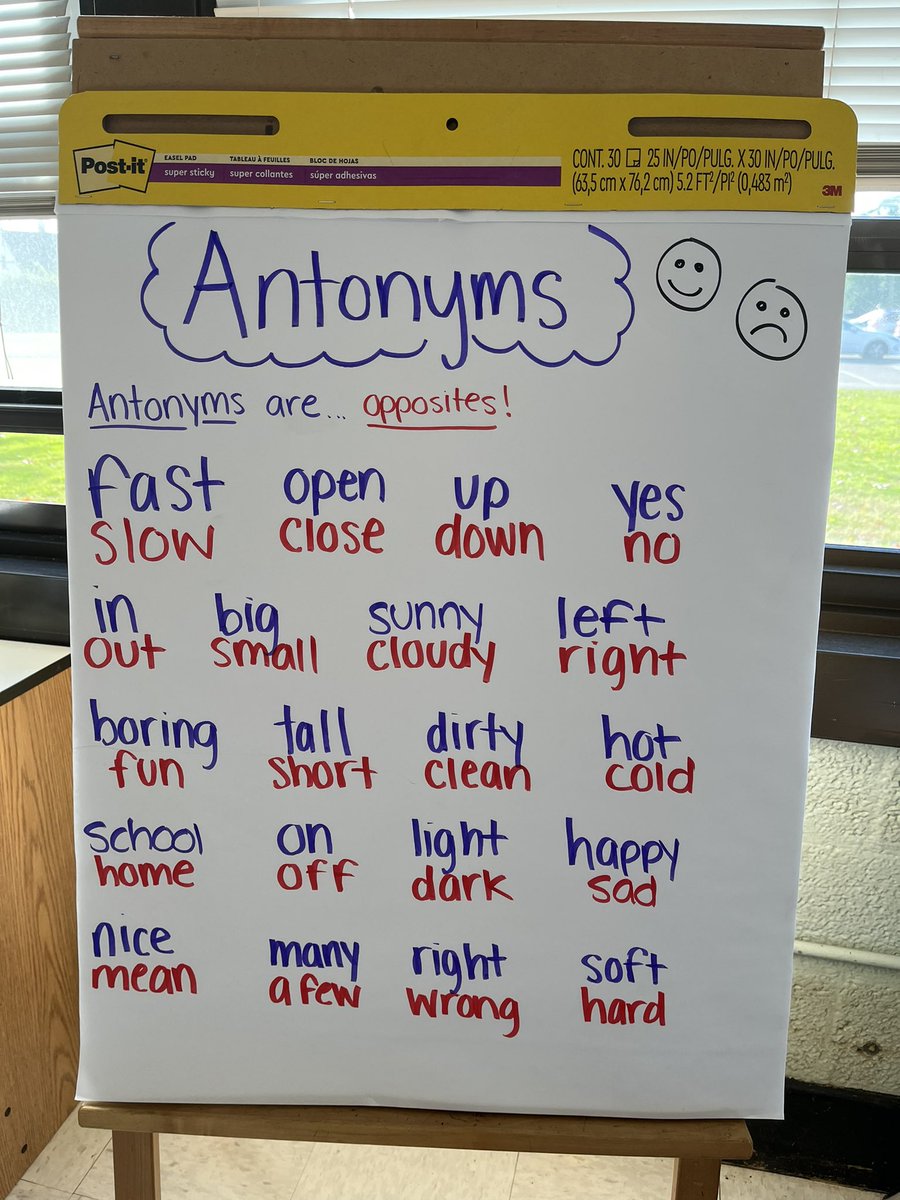 Post-it
EASEL PAD TABLEAU À FEUILLES BLOC DE HOJAS
super sticky super collantes súper adhesivas
CONT. 30 25 IN/PO/PULG. X 30 IN/PO/PULG.
(63,5 cm x 76,2 cm) 5.2 FT²/PI² (0,483 m²)
3M
Antonyms
Antonyms are... opposites!
fast open up yes
slow close down no
in big sunny left
out small cloudy right
boring tall dirty hot
fun short clean cold
school on light happy
home off dark sad
nice many right soft
mean a few wrong hard